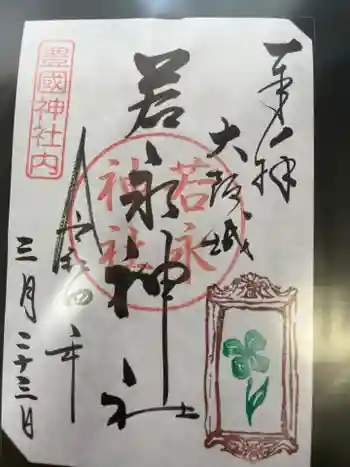 奉拝
大阪城
若永神社
若永
神社
令和四年
三月二十三日
豊國神社内